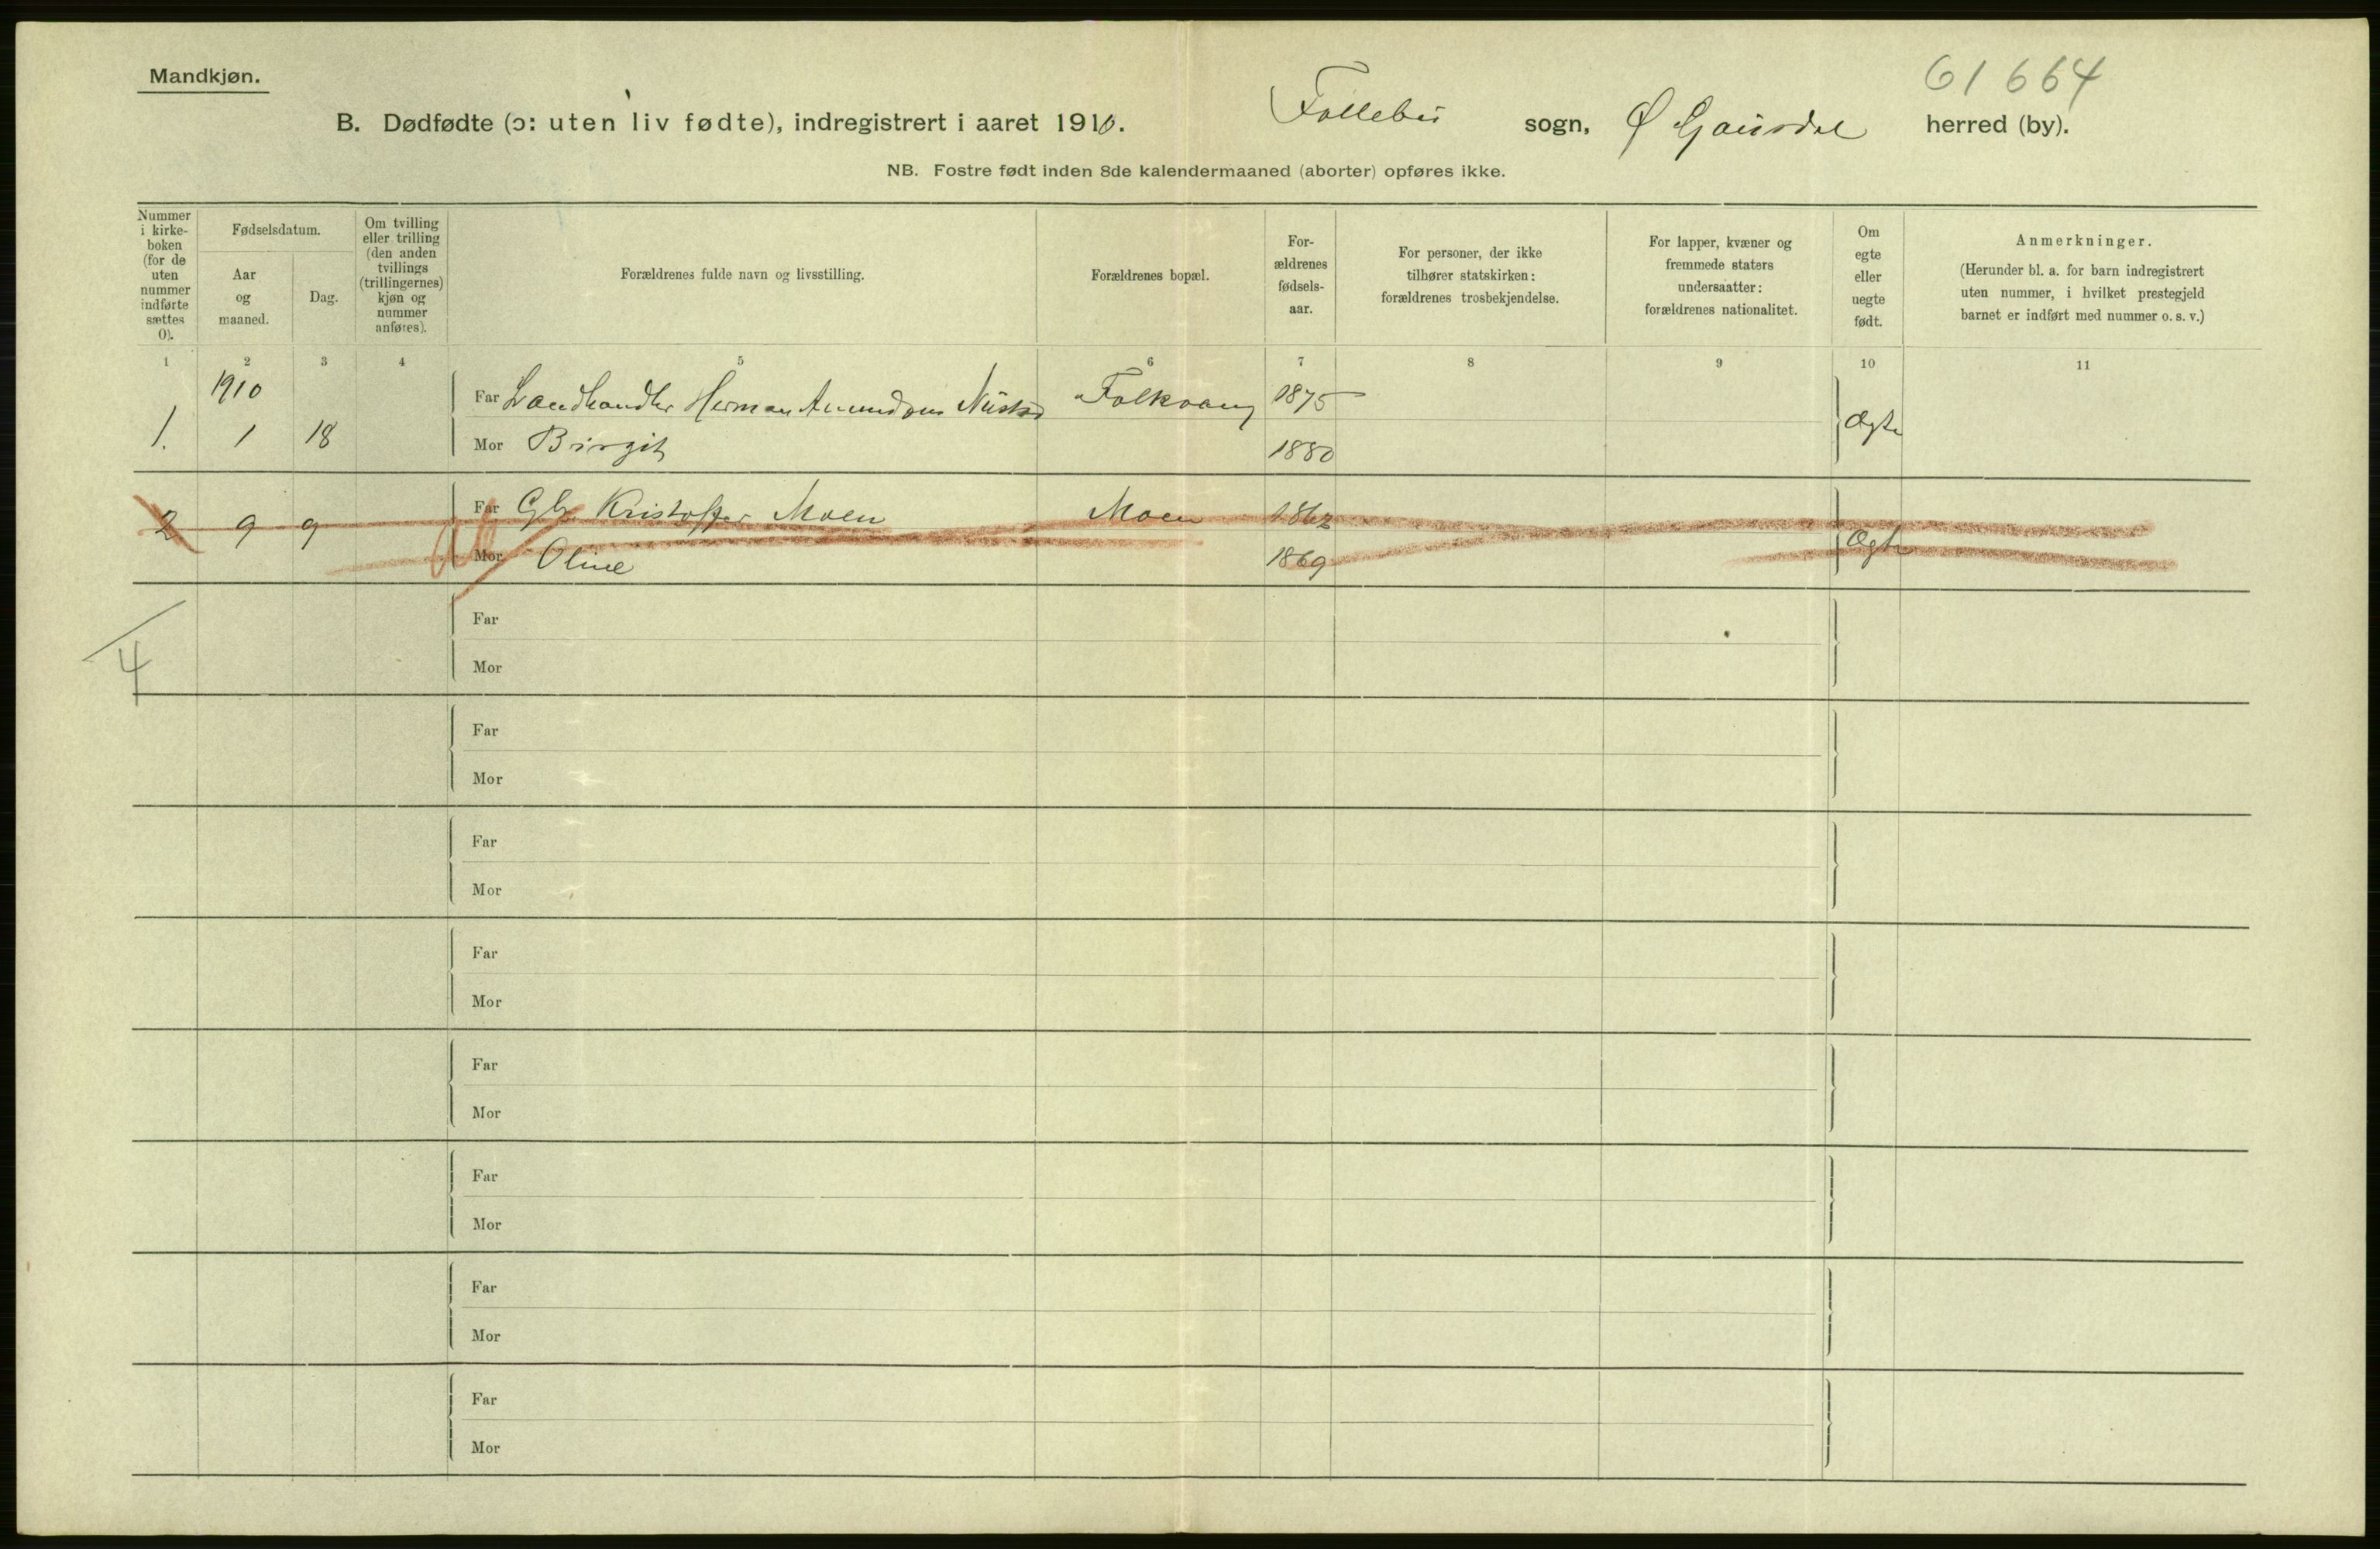 Mandkjøn.
61 664
B. Dødfødte (ɔ: uten liv fødte), indregistrert i aaret 1910. Follebu sogn, Ø Gausdal herred (by).
NB. Fostre født inden 8de kalendermaaned (aborter) opføres ikke.
Nummer i kirke-boken (for de uten nummer indførte sættes 0).
Fødselsdatum.
Aar og maaned.
Dag.
Om tvilling eller trilling (den anden tvillings (trillingernes) kjøn og nummer anføres).
Forældrenes fulde navn og livsstilling.
Forældrenes bopæl.
For-ældrenes fødsels-aar.
For personer, der ikke tilhører statskirken: forældrenes trosbekjendelse.
For lapper, kvæner og fremmede staters undersaatter: forældrenes nationalitet.
Om egte eller uegte født.
Anmerkninger.
(Herunder bl. a. for barn indregistrert uten nummer, i hvilket prestegjeld barnet er indført med nummer o. s. v.)
1 2 3 4 5 6 7 8 9 10 11
1910
Far Landhandler Herman Amundsen Nustad Folkvang 1875
1. 1 18 Mor Birgit 1880 Ægte
Far Gbr. Kristoffer Moen Moen 1862
2 9 9 Mor Oline 1869 Ægte
Far
4
Mor
Far
Mor
Far
Mor
Far
Mor
Far
Mor
Far
Mor
Far
Mor
Far
Mor